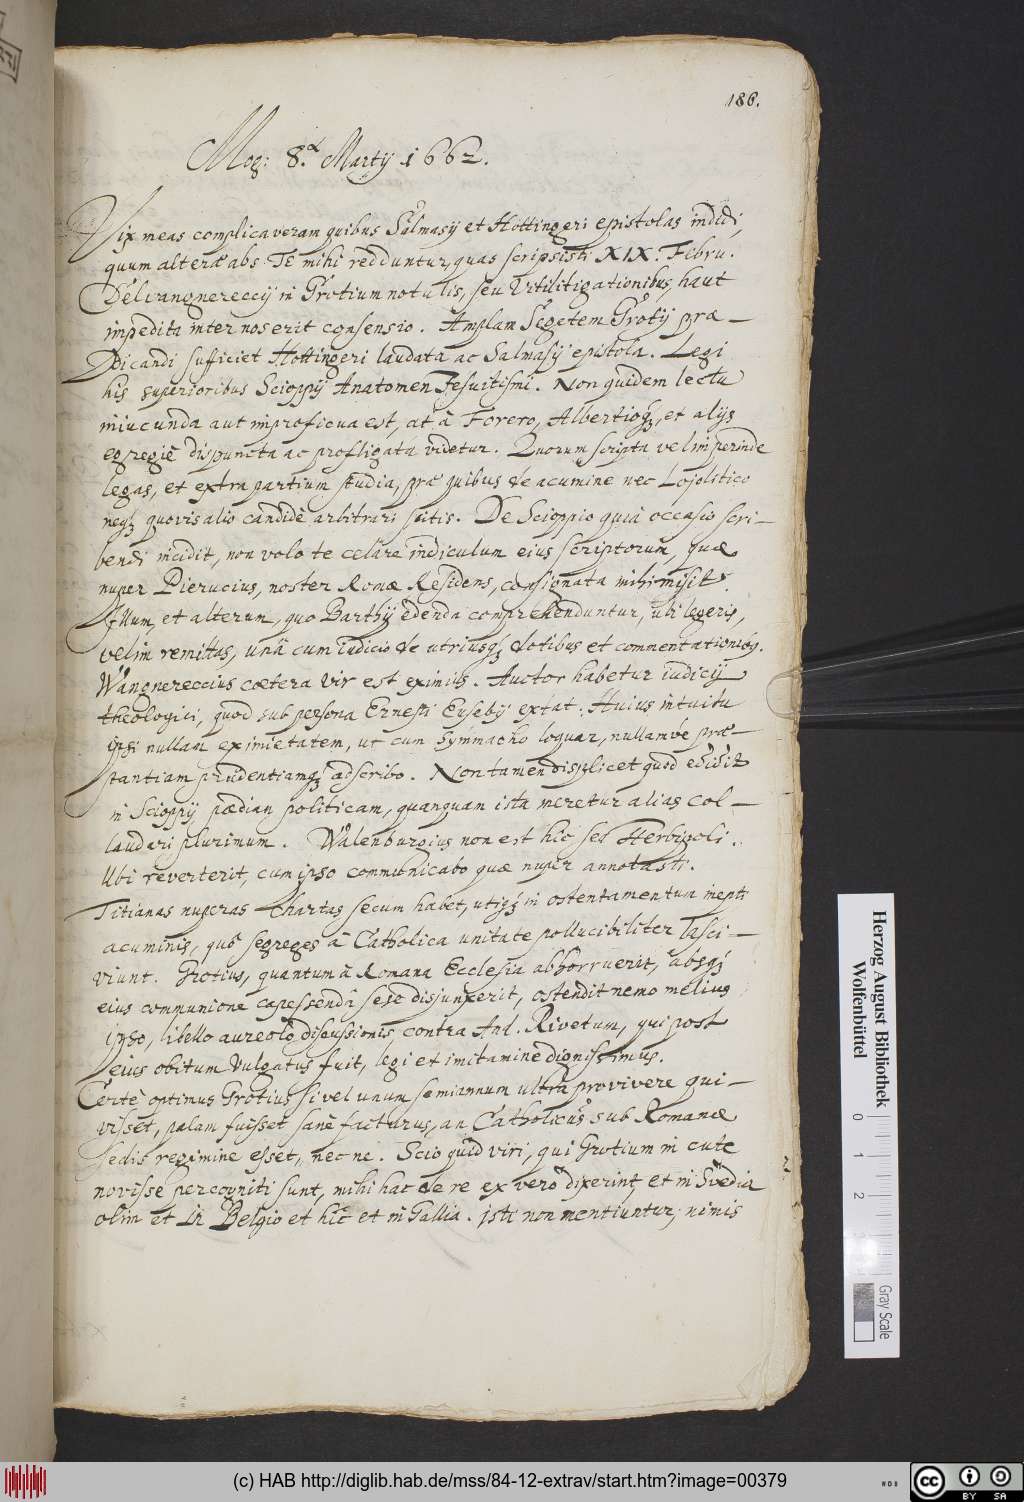 186.
Mog: 8.ª Martij 1662.
Vix meas complicaveram quibus Salmasij et Hottingeri epistolas indidi,
quum alteræ abs Te mihi redduntur, quas scripsisti XIX. Febru.
De Wangnereccij in Grotium notulis, seu Vitilitigationibus, haut
impedita inter nos erit consensio. Amplam Segetem Grotij præ-
dicandi sufficiet Hottingeri laudata ac Salmasij epistola. Legi
his superioribus Scioppij Anatomen Jesuitismi. Non quidem lectu
iniucunda aut improficua est, at à Forero, Albertioqꝫ, et alijs
egregiè dispuncta ac profligata videtur. Quorum scripta velim perinde
legas, et extra partium studia, præ quibus de acumine nec Lojolitico
neqꝫ quovis alio candidè arbitrari scitis. De Scioppio quia occasio scri-
bendi incidit, non volo te celare indiculum eius scriptorum, quæ
nuper Pierucius, noster Romæ Residens, consignata mihi misit.
Illum, et alterum, quo Barthij edenda comprehenduntur, ubi legeris,
velim remittas, unâ cum iudicio de utriusqꝫ dotibus et commentationibqꝫ.
Wangnereccius cætera vir est eximius. Auctor habetur iudicij
theologici, quod sub persona Ernesti Eusebij extat. Huius intuitu
ipsi nullam eximietatem, ut cum Symmacho loquar, nullamve præ-
stantiam prudentiamqꝫ adscribo. Non tamen displicet quod edidit
in Scioppij pædian politicam, quanquam ista meretur alias col-
laudari plurimum. Walenburgius non est hic sed Herbipoli.
Ubi reverterit, cum ipso communicabo quæ nuper annotasti.
Titianas nuperas chartas secum habet, utiqꝫ in ostentamentum inepti
acuminis, quo segreges à Catholica unitate pollucibiliter lasci-
viunt. Grotius, quantum à Romana Ecclesia abhorruerit, absqꝫ
eius communione capessendâ sese disjunxerit, ostendit nemo melius
ipso, libello aureolo discussionis contra And. Rivetum, qui post
eius obitum vulgatus fuit, legi et imitamine dignissimus.
Certè optimus Grotius si vel unum semiannum ultra provivere qui-
visset, palam fuisset sanè facturus, an Catholicus sub Romanæ
sedis regimine esset, nec ne. Scio quid viri, qui Grotium in cute
novisse percogniti sunt, mihi hac de re ex vero dixerint, et in Suedia
olim et in Belgio et hic et in Gallia. isti non mentiuntur, nimis
Herzog August Bibliothek
Wolfenbüttel
0 1 2
Gray Scale
(c) HAB http://diglib.hab.de/mss/84-12-extrav/start.htm?image=00379
cc BY SA